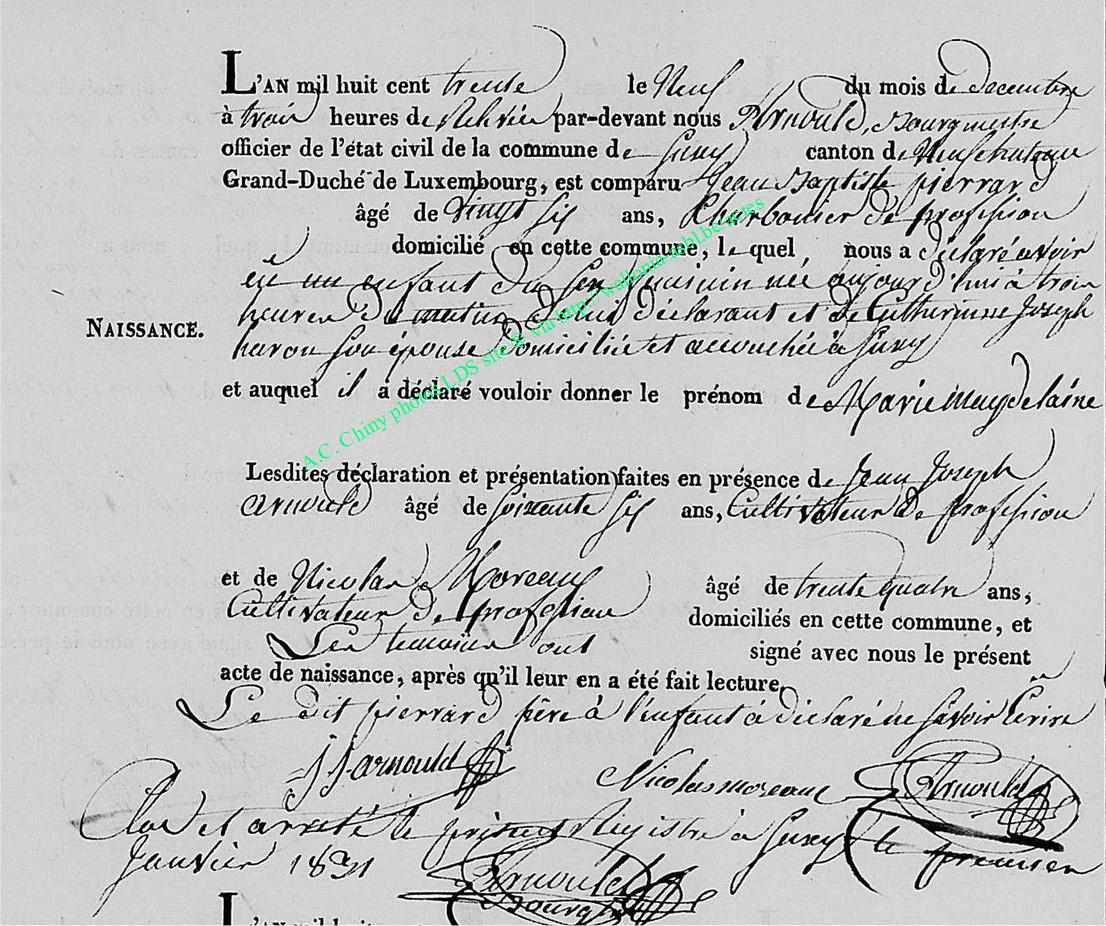 L'AN mil huit cent trente le Neuf du mois de decembre
à trois heures de Relevée par-devant nous Arnould, Bourgmestre
officier de l'état civil de la commune de Suxy canton de Neufchateau
Grand-Duché de Luxembourg, est comparu Jean Baptiste pierrard
âgé de vingt six ans, Charbonier de profession
domicilié en cette commune, le quel nous a déclaré avoir
eu un enfant du sex née aujourd'hui à trois
NAISSANCE.
heures du matin de lui déclarant et de Catherinne Joseph
haron son épouse domiciliée et accouchée à Suxy
et auquel il a déclaré vouloir donner le prénom de Marie magdelaine
A.C. Chiny photos LDS site & via http://wallonia-asbl.be/actes
Lesdites déclaration et présentation faites en présence de Jean Joseph
arnould âgé de soixante six ans, Cultivateur de profession
et de Nicolas Moreaux âgé de trente quatre ans,
Cultivateur de profession domiciliés en cette commune, et
Les temoins ont signé avec nous le présent
acte de naissance, après qu'il leur en a été fait lecture.
Le dit pierrard père à l'enfant à déclaré ne savoir Ecrire
J J arnould Nicolas moreaux Arnould
Clos et arreté le présent Registre à Suxy le premier
Janvier 1831 Arnould
Bourg
L'AN mil huit